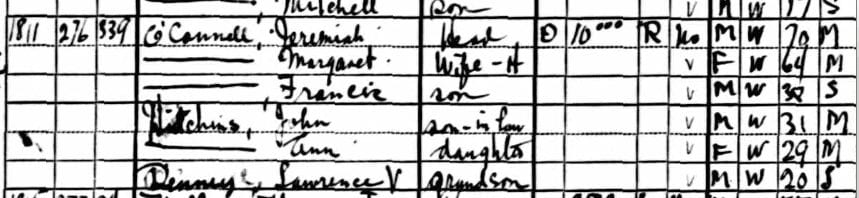 Mitchell son V M W 17 S
1811 276 339 O'Connell, Jeremiah Head O 10000 R No M W 70 M
Margaret Wife-H V F W 64 M
Francis son V M W 38 S
Hitchins, John son-in law V M W 31 M
Ann daughter V F W 29 M
Denney, Lawrence V grandson V M W 20 S